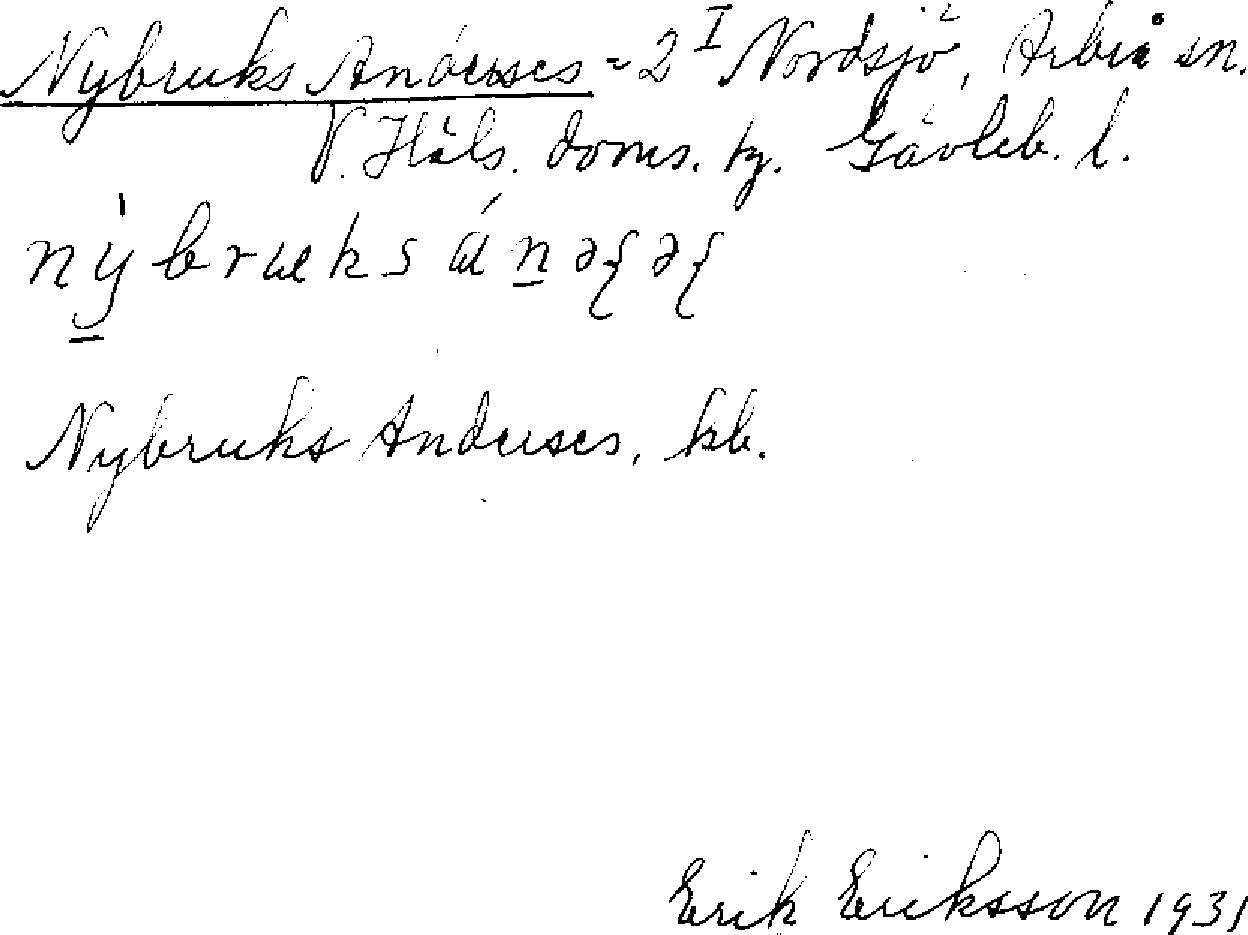 Nybruks Anderses = 2 I Nordsjö, Arbrå sn.
V. Häls. doms. tg. Gävleb. l.
Nybruks Anderses, kb.
Erik Eriksson 1931